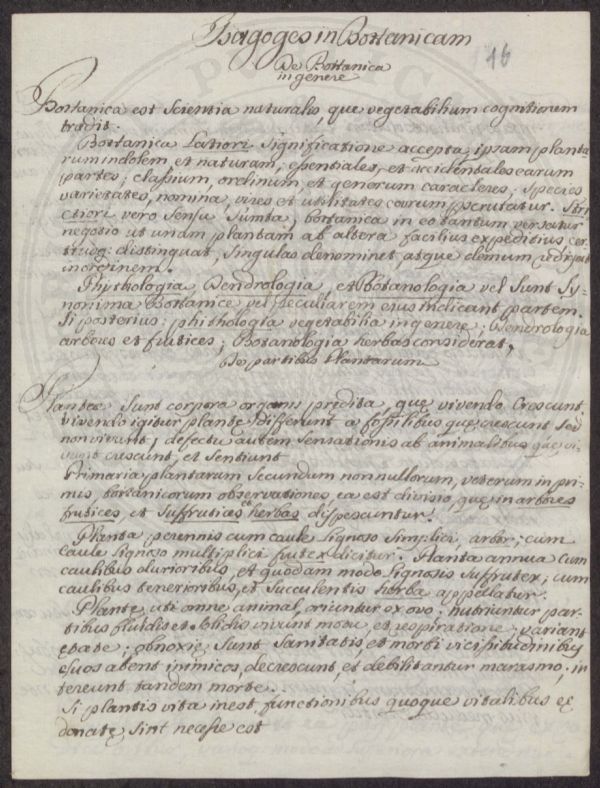 Isagoges in Bottanicam
16
De Bottanica
in genere
Bottanica est scientia naturalis quę vegetabilium cognitionem
tradit.
Bottanica Latiori significatione accepta, ipsam planta
rum indolem, et naturam, essentiales, et accidentales earum
partes; classium, ordinum, et generum caracteres; species
varietates, nomina, vires et utilitates earum perscrutatur. Stri
ctiori vero sensu sumta, bottanica in eo tantum versatur
negotio ut unam plantam ab altera facilius expeditius cer
tiusq; distinguat, singulas denominet, atque demum redigat
in ordinem.
Phythologia, Dendrologia, et Bottanologia vel sunt sy
nonima Bottanice vel peculiarem eius indicant partem.
Si posterius; phithologia vegetabilia in genere; Dendrologia
arbores et frutices; Botanologia herbas considerat,
De partibus Plantarum
Plantæ sunt corpora organis predita, quę vivendo crescunt
vivendo igitur plantę differunt a fossilibus quę crescunt sed
non vivunt; defectu autem sensationis ab animalibus quę vi
vunt crescunt, et sentiunt
Primaria plantarum secundum nonnullorum, veterum in pri
mis, bottanicorum observationes, ea est divisio quę in arbores
frutices, et suffrutices et herbas dispescuntur.
Planta perennis cum caule lignoso simplici, arbor; cum
caule lignoso multiplici frutex dicitur. Planta annua cum
caulibus durioribus, et quodam modo lignosis suffrutex; cum
caulibus tenerioribus, et succulentis herba appellatur.
Plantę, uti omne animal, oriuntur ex ovo; nutriuntur par
tibus fluidis et solidis vivunt motu, et respiratione; variant
ętate; obnoxię sunt sanitatis, et morbi vicissitudinibus
suos abent inimicos, decrescunt, et debilitantur marasmo, in
tereunt tandem morte.
Si plantis vita inest functionibus quoque vitalibus eę
donatę, sint necesse est